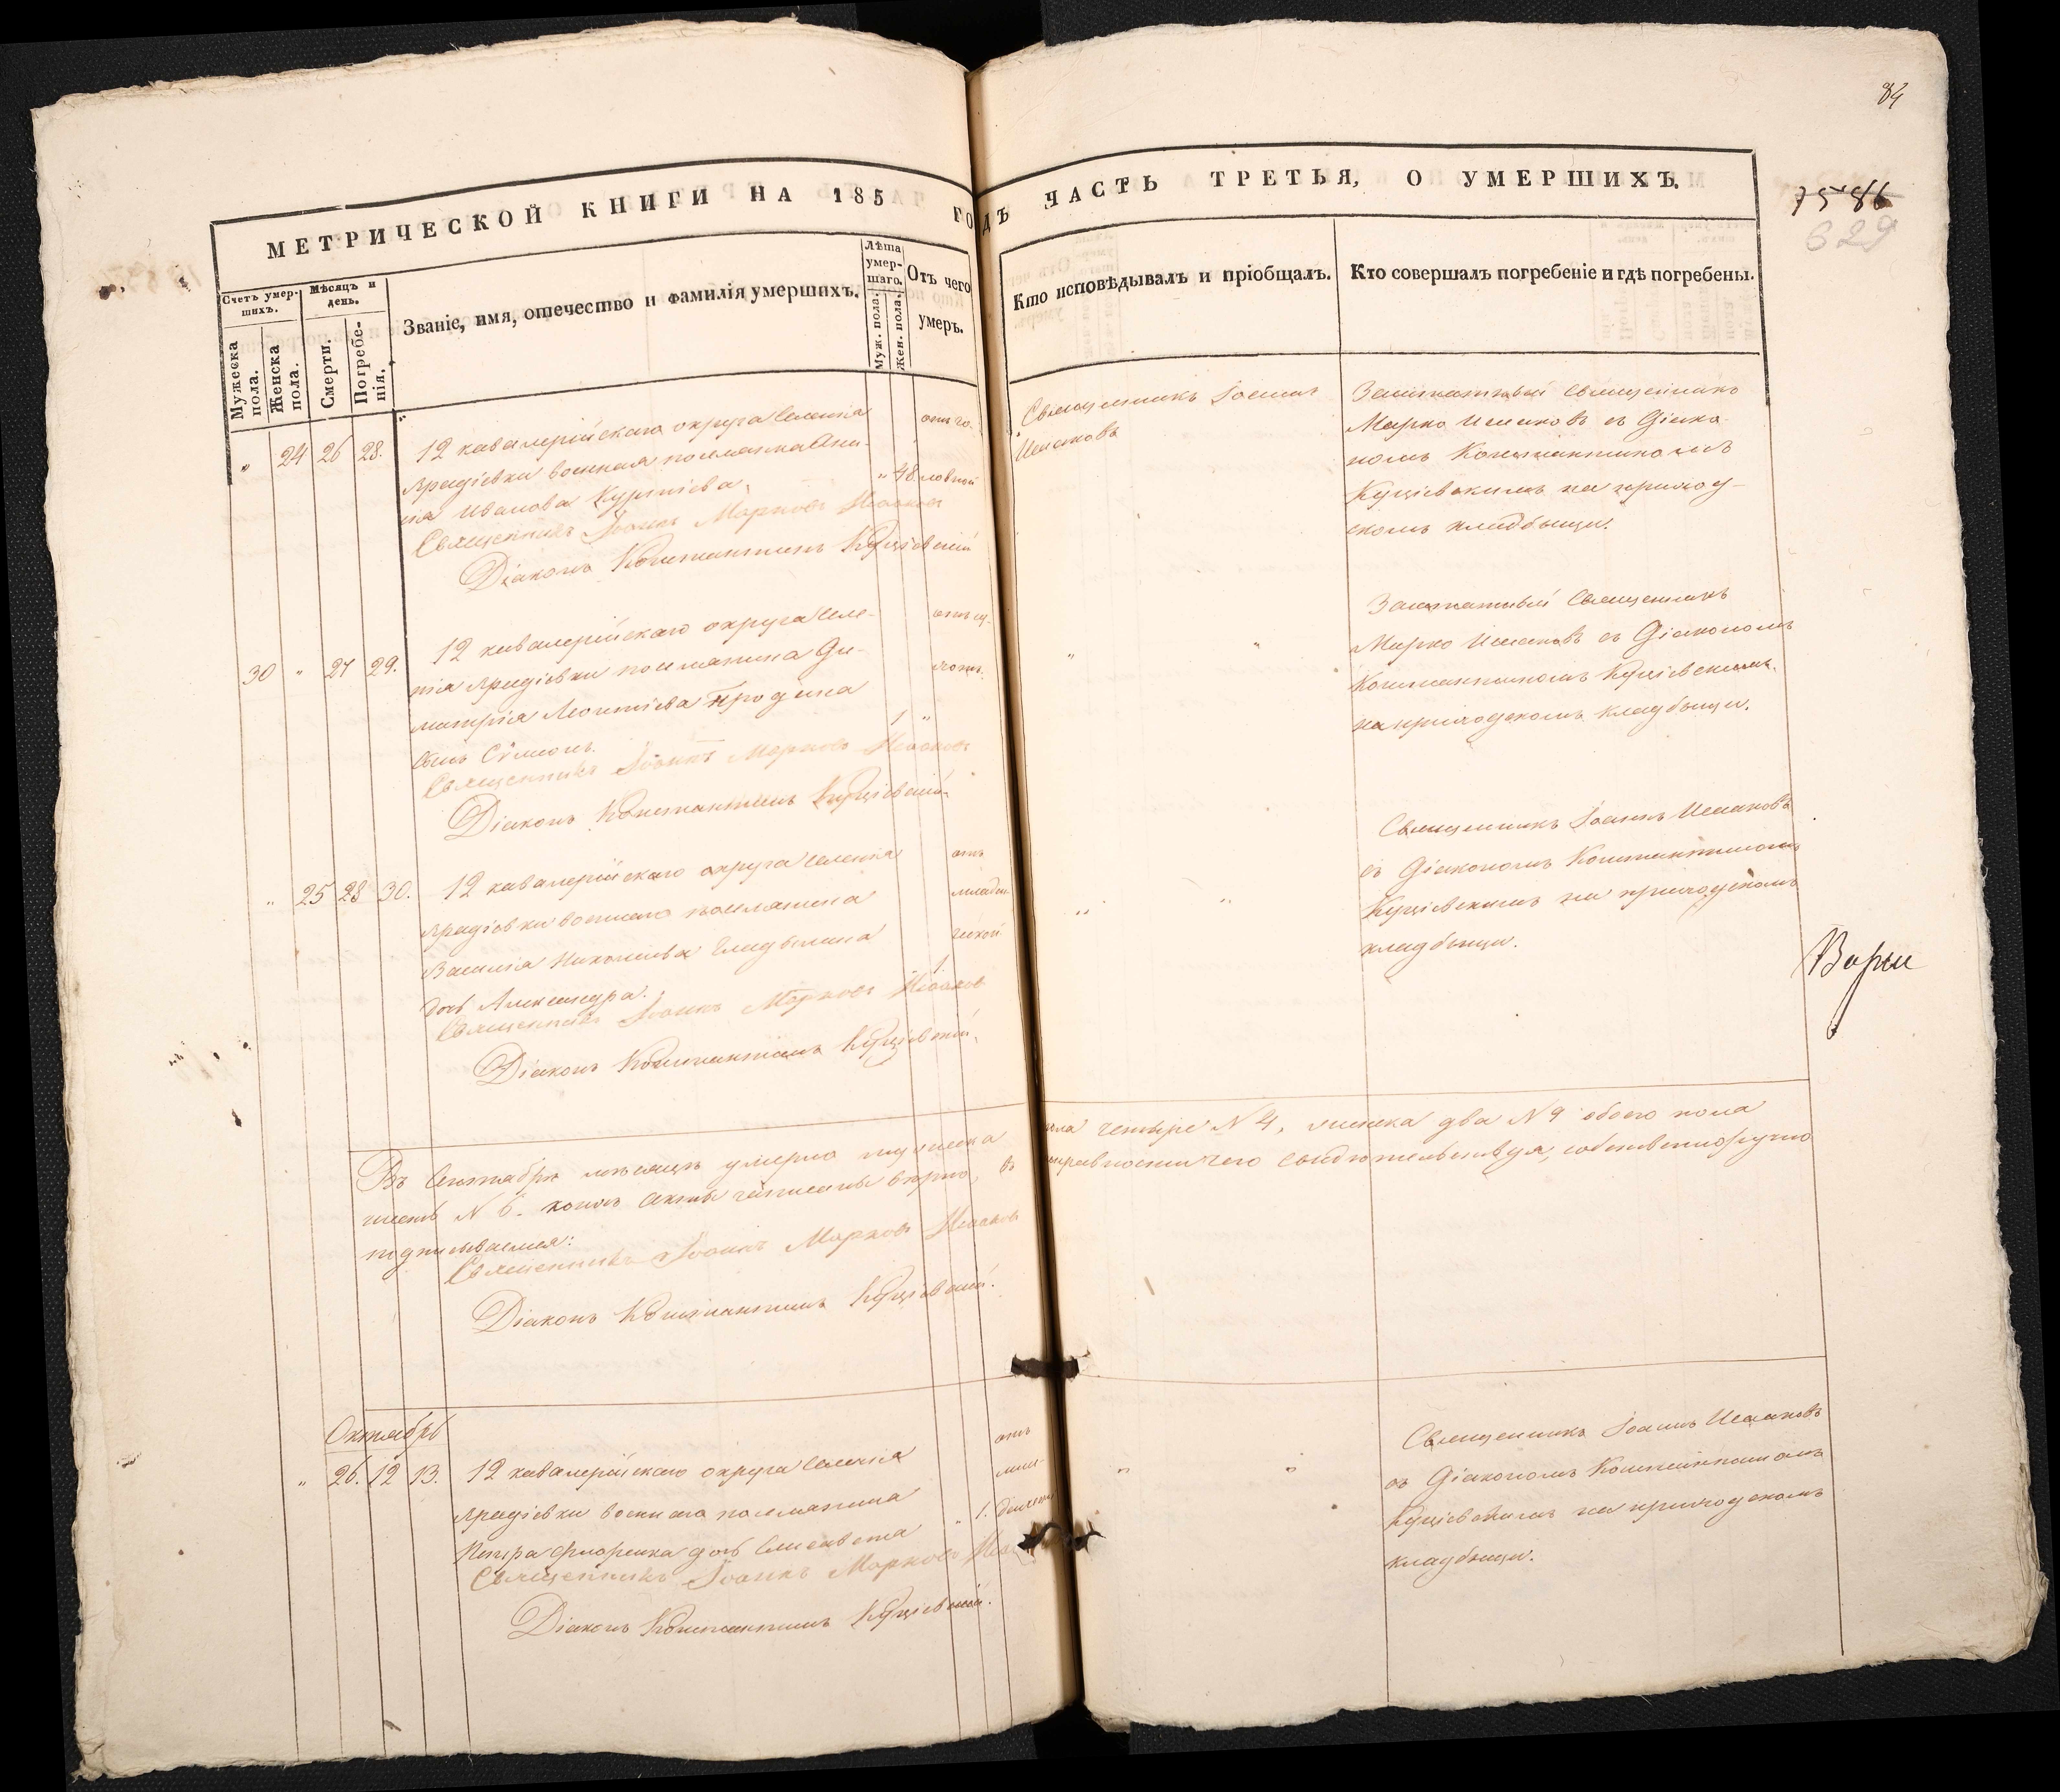 84
75. 86
629
МЕТРИЧЕСКОЙ КНИГИ НА 185 ГОДЪ ЧАСТЬ ТРЕТЬЯ, О УМЕРШИХЪ.
Счетъ умершихъ.
Мужеска пола.
Женска пола.
Мѣсяцъ и день.
Смерти.
Погребенія.
Званіе, имя, отечество и фамилія умершихъ.
Лѣта умершаго.
Муж. пола.
Жен. пола.
Отъ чего умеръ.
Кто исповѣдывалъ и пріобщалъ.
Кто совершалъ погребеніе и гдѣ погребены.
" 24 26 28.
12 кавалерійскаго округа Селенія
Арадіевки военная поселянка Ан-
на Иванова
Священникъ Іоаннъ Марковъ Исаковъ
Діаконъ Константинъ Куціевскій
" 48
отъ го-
ловной
Священникъ Іоаннъ
Исаковъ
Заштатный Священникъ
Марко Исаковъ съ Діако-
номъ Константиномъ
Куціевскимъ на приход-
скомъ кладбищи.
30 " 27 29.
12 кавалерійскаго округа Селе-
нія Арадіевки поселянина Ди-
митрія Леонтіева
сынъ Сѵмеонъ.
Священникъ Іоаннъ Марковъ Исаковъ
Діаконъ Константинъ Куціевскій
1 "
" "
Заштатный Священникъ
Марко Исаковъ съ Діакономъ
Константиномъ Куціевскимъ
на приходскомъ кладбищи.
" 25 28 30.
12 кавалерійскаго округа Селенія
Арадіевки военнаго поселянина
Василія Николаева
дочь Александра.
Священникъ Іоаннъ Марковъ Исаковъ
Діаконъ Константинъ Куціевскій.
" 1
отъ
младен-
ческой
" "
Священникъ Іоаннъ Исаковъ
съ Діакономъ Константиномъ
Куціевскимъ на приходскомъ
кладбищи.
Въ Сентябрѣ мѣсяцѣ умерло мужеска пола четыре N 4, женска два N обоего пола
шесть N 6. коихъ акты записаны вѣрно, въ исправности чего свидѣтельствуя, собственноручно
подписываемся:
Священникъ Іоаннъ Марковъ Исаковъ
Діаконъ Константинъ Куціевскій.
Октябрь
" 26. 12 13.
12 кавалерійскаго округа Селенія
Арадіевки военнаго поселянина
Петра дочь Елисавета
Священникъ Іоаннъ Марковъ
Діаконъ Константинъ Куціевскій.
" 1.
отъ
" "
Священникъ Іоаннъ Исаковъ
съ Діакономъ Константиномъ
Куціевскимъ на приходскомъ
кладбищи.